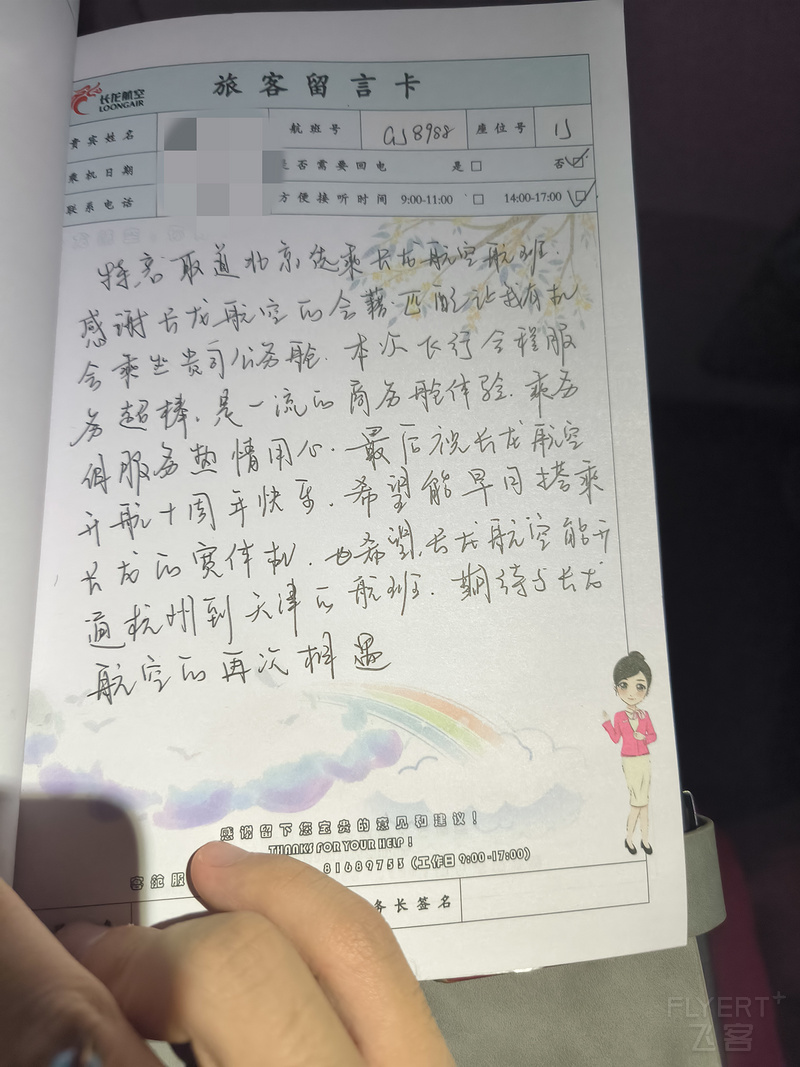 长龙航空
LOONGAIR
旅客留言卡
贵宾姓名 航班号 GJ8988 座位号 1J
乘机日期 是否需要回电 是 否
联系电话 方便接听时间 9:00-11:00 14:00-17:00
特意取道北京优乘长龙航空航班.
感谢长龙航空的会籍匹配让我有机
会乘坐贵司公务舱.本次飞行全程服
务超棒,是一流的商务舱体验.乘务
组服务热情用心.最后祝长龙航空
开航十周年快乐.希望能早日搭乘
长龙的宽体机.也希望长龙航空能开
通杭州到天津的航班.期待与长龙
航空的再次相遇
感谢留下您宝贵的意见和建议!
THANKS FOR YOUR HELP!
客舱服 81689753 (工作日 9:00-17:00)
务长签名
FLYERT+
飞客